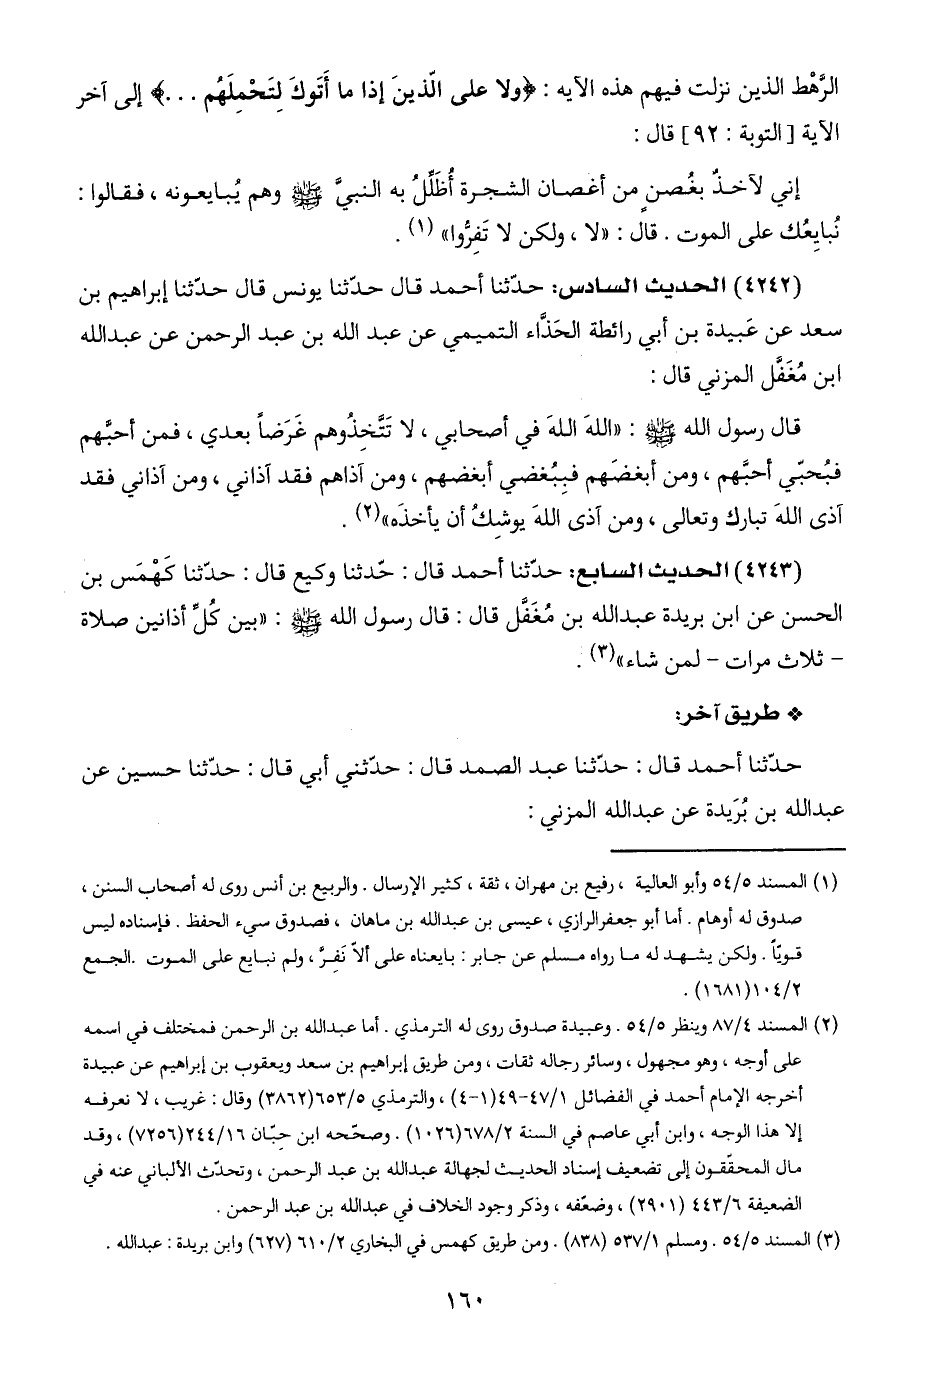 الرَّهْط الذين نزلت فيهم هذه الآيه : ﴿ولا على الّذينَ إذا ما أَتَوكَ لِتَحْمِلَهُم ...﴾ إلى آخر
الآية [التوبة : ٩٢] قال :
إني لآخذُ بغُصنٍ من أغصان الشجرة أُظَلِّلُ به النبيَّ ﷺ وهم يُبايعونه ، فقالوا :
نُبايِعُك على الموت . قال : «لا ، ولكن لا تَفِرُّوا» (١) .
(٤٢٤٢) الحديث السادس: حدّثنا أحمد قال حدّثنا يونس قال حدّثنا إبراهيم بن
سعد عن عَبيدة بن أبي رائطة الحَذَّاء التميمي عن عبد الله بن عبد الرحمن عن عبدالله
ابن مُغَفَّل المزني قال :
قال رسول الله ﷺ : «اللهَ اللهَ في أصحابي ، لا تَتَّخِذُوهم غَرَضاً بعدي ، فمن أحبَّهم
فبُحبّي أحبَّهم ، ومن أبغضَهم فبِبُغضي أبغضهم ، ومن آذاهم فقد آذاني ، ومن آذاني فقد
آذى اللهَ تبارك وتعالى ، ومن آذى اللهَ يوشِكُ أن يأخذَه»(٢) .
(٤٢٤٣) الحديث السابع: حدّثنا أحمد قال : حّدثنا وكيع قال : حدّثنا كَهْمَس بن
الحسن عن ابن بريدة عبدالله بن مُغَفَّل قال : قال رسول الله ﷺ : «بين كُلِّ أذانين صلاة
– ثلاث مرات – لمن شاء»(٣) .
❖ طريق آخر:
حدّثنا أحمد قال : حدّثنا عبد الصمد قال : حدّثني أبي قال : حدّثنا حسين عن
عبدالله بن بُرَيدة عن عبدالله المزني :
(١) المسند ٥٤/٥ وأبو العالية ، رفيع بن مهران ، ثقة ، كثير الإرسال . والربيع بن أنس روى له أصحاب السنن ،
صدوق له أوهام . أما أبو جعفرالرازي ، عيسى بن عبدالله بن ماهان ، فصدوق سيء الحفظ . فإسناده ليس
قويّاً . ولكن يشهد له ما رواه مسلم عن جابر : بايعناه على ألاّ نَفِرَّ ، ولم نبايع على الموت .الجمع
١٠٤/٢(١٦٨١) .
(٢) المسند ٨٧/٤ وينظر ٥٤/٥ . وعبيدة صدوق روى له الترمذي . أما عبدالله بن الرحمن فمختلف في اسمه
على أوجه ، وهو مجهول ، وسائر رجاله ثقات ، ومن طريق إبراهيم بن سعد ويعقوب بن إبراهيم عن عبيدة
أخرجه الإمام أحمد في الفضائل ٤٧/١-٤٩(١-٤) ، والترمذي ٦٥٣/٥(٣٨٦٢) وقال : غريب ، لا نعرفه
إلا هذا الوجه ، وابن أبي عاصم في السنة ٦٧٨/٢(١٠٢٦) . وصحّحه ابن حِبّان ٢٤٤/١٦(٧٢٥٦) ، وقد
مال المحقّقون إلى تضعيف إسناد الحديث لجهالة عبدالله بن عبد الرحمن ، وتحدّث الألباني عنه في
الضعيفة ٤٤٣/٦ (٢٩٠١) ، وضعّفه ، وذكر وجود الخلاف في عبدالله بن عبد الرحمن .
(٣) المسند ٥٤/٥ . ومسلم ٥٣٧/١ (٨٣٨) . ومن طريق كهمس في البخاري ٦١٠/٢ (٦٢٧) وابن بريدة : عبدالله .
١٦٠